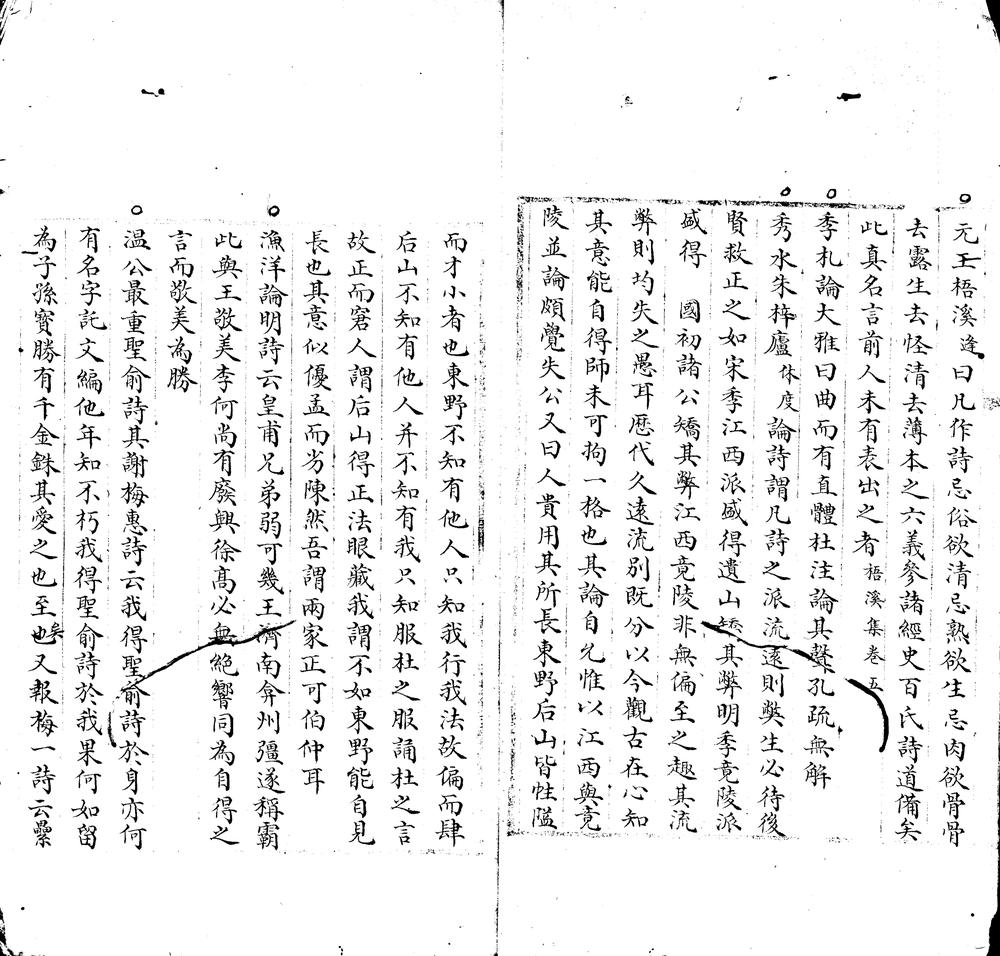 元王梧溪逢曰凡作詩忌俗欲清忌熟欲生忌肉欲骨骨
去露生去怪清去薄本之六義參諸經史百氏詩道備矣
此真名言前人未有表出之者梧溪集卷五
季札論大雅曰曲而有直體杜注論其聲孔疏無解
秀水朱梓廬休度論詩謂凡詩之派流遠則獘生必待後
賢救正之如宋季江西派盛得遺山矯其弊明季竟陵派
盛得　國初諸公矯其弊江西竟陵非無偏至之趣其流
弊則均失之愚耳歷代久遠流別既分以今觀古在心知
其意能自得師未可拘一格也其論自允惟以江西與竟
陵並論頗覺失公又曰人貴用其所長東野后山皆性隘
而才小者也東野不知有他人只知我行我法故偏而肆
后山不知有他人并不知有我只知服杜之服誦杜之言
故正而窘人謂后山得正法眼藏我謂不如東野能自見
長也其意似優孟而劣陳然吾謂兩家正可伯仲耳
漁洋論明詩云皇甫兄弟弱可幾王濟南弇州彊遂稱霸
此與王敬美李何尚有廢興徐高必無絕響同為自得之
言而敬美為勝
温公最重聖俞詩其謝梅惠詩云我得聖俞詩於身亦何
有名字託文編他年知不朽我得聖俞詩於我果何如留
為子孫寶勝有千金銖其愛之也至也矣又報梅一詩云纍